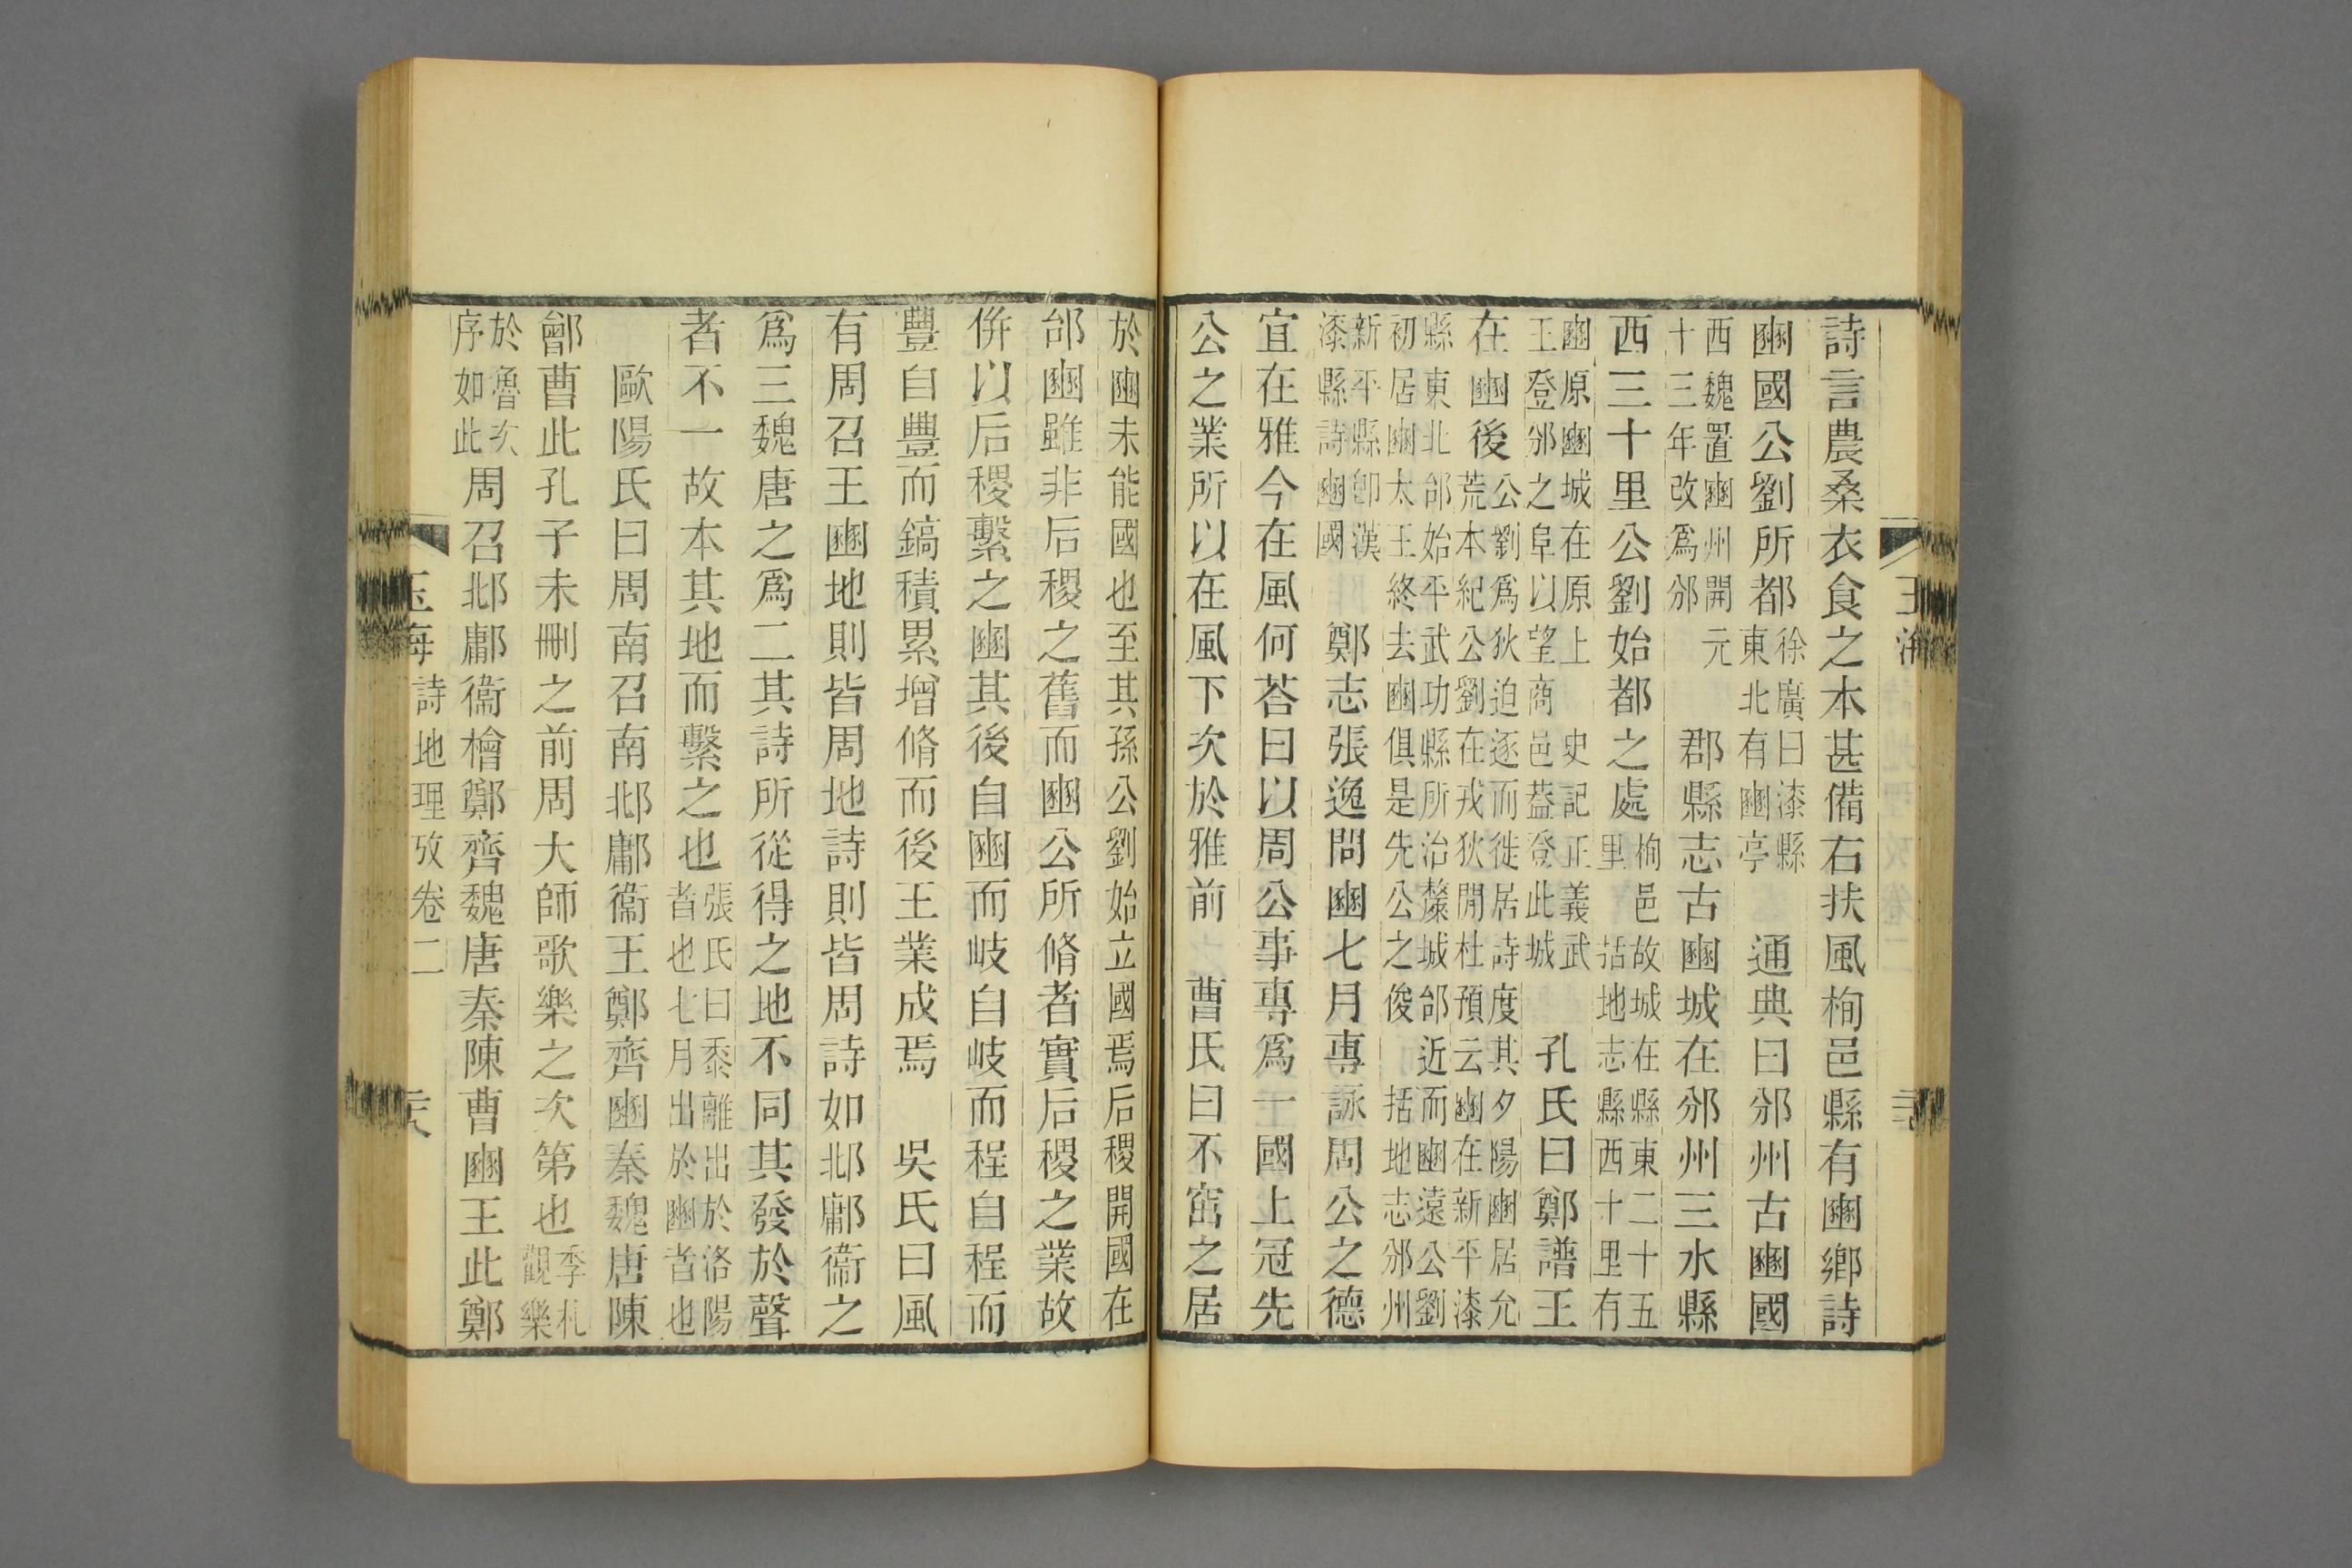 玉海
詩言農桑衣食之本甚備右扶風栒邑縣有豳鄉詩
豳國公劉所都徐廣曰漆縣東北有豳亭 通典曰邠州古豳國
西魏置豳州開元十三年改爲邠 郡縣志古豳城在邠州三水縣
西三十里公劉始都之處栒邑故城在縣東二十五里 括地志縣西十里有
豳原豳城在原上 史記正義武王登邠之阜以望商邑葢登此城 孔氏曰鄭譜王
在豳後公劉爲狄迫逐而徙居詩度其夕陽豳居允荒本紀公劉在戎狄閒杜預云豳在新平漆
縣東北邰始平武功縣所治釐城邰近而豳遠公劉初居豳太王終去豳俱是先公之俊 括地志邠州
新平縣卽漢漆縣詩豳國 鄭志張逸問豳七月專詠周公之德
宜在雅今在風何荅曰以周公事專爲一國上冠先
公之業所以在風下次於雅前 曹氏曰不窋之居
於豳未能國也至其孫公劉始立國焉后稷開國在
邰豳雖非后稷之舊而豳公所脩者實后稷之業故
倂以后稷繫之豳其後自豳而岐自岐而程自程而
豐自豐而鎬積累增脩而後王業成焉 吳氏曰風
有周召王豳地則皆周地詩則皆周詩如邶鄘衞之
爲三魏唐之爲二其詩所從得之地不同其發於聲
者不一故本其地而繫之也張氏曰黍離出於洛陽者也七月出於豳者也
歐陽氏曰周南召南邶鄘衞王鄭齊豳秦魏唐陳
鄶曹此孔子未刪之前周大師歌樂之次第也季札觀樂
於魯次序如此 周召邶鄘衞檜鄭齊魏唐秦陳曹豳王此鄭
玉海 詩地理攷卷二